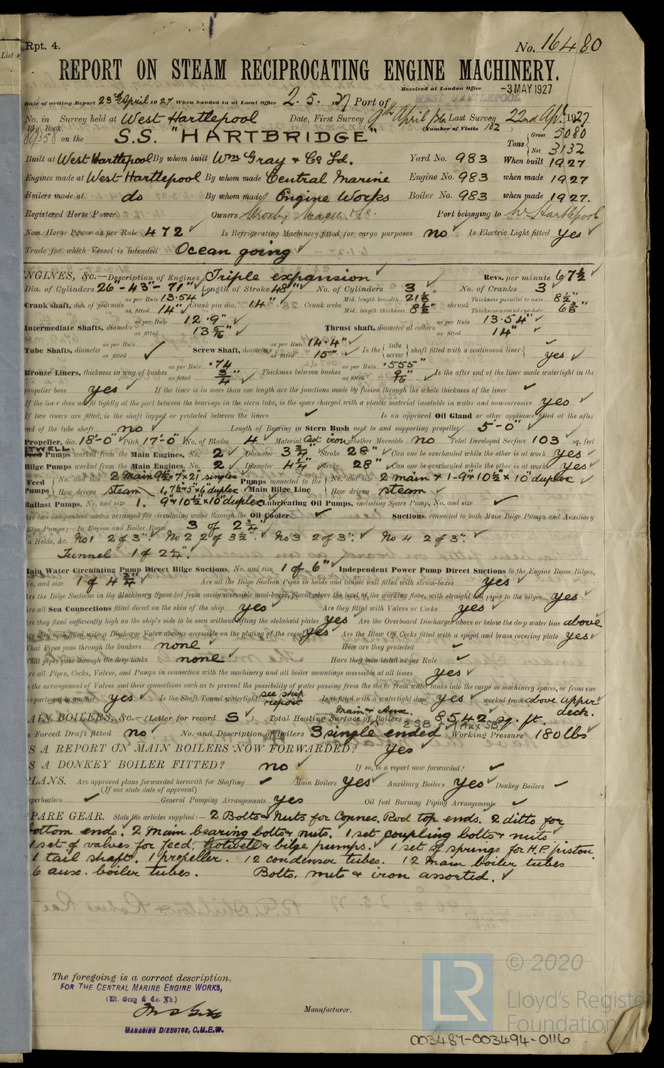 Rpt. 4. No. 16480
REPORT ON STEAM RECIPROCATING ENGINE MACHINERY.
Received at London Office -3 MAY 1927
Date of writing Report 23rd April 1927 When handed in at Local Office 2. 5. 27 Port of WEST HARTLEPOOL
No. in Survey held at West Hartlepool Date, First Survey April /26 Last Survey 22nd Apl. 1927
Reg. Book. (Number of Visits 102
on the S.S. "HARTBRIDGE" Tons Gross 5080 Net 3132
Built at West Hartlepool By whom built Wm Gray & Co Ld. Yard No. 983 When built 1927
Engines made at West Hartlepool By whom made Central Marine Engine No. 983 when made 1927
Boilers made at do By whom made Engine Works Boiler No. 983 when made 1927.
Registered Horse Power Owners Port belonging to W. Hartlepool
Nom. Horse Power as per Rule 472 Is Refrigerating Machinery fitted for cargo purposes no Is Electric Light fitted yes
Trade for which Vessel is intended Ocean going
ENGINES, &c.—Description of Engines Triple expansion Revs. per minute 67½
Dia. of Cylinders 26"-43"-71" Length of Stroke 48" No. of Cylinders 3 No. of Cranks 3
Crank shaft, dia. of journals as per Rule 13.54 as fitted 14" Crank pin dia. 14" Crank webs Mid. length breadth 21½ Mid. length thickness 8½" Thickness parallel to axis 8½" Thickness around eye-hole
Intermediate Shafts, diameter as per Rule 12.9" as fitted Thrust shaft, diameter at collars as per Rule 13.54" as fitted 14"
Tube Shafts, diameter as per Rule as fitted Screw Shaft, diameter as per Rule 14.4" as fitted 15" Is the tube screw shaft fitted with a continuous liner yes
Bronze Liners, thickness in way of bushes as per Rule .74 as fitted ¾" Thickness between bushes as per Rule .555" as fitted 9/16 Is the after end of the liner made watertight in the
propeller boss yes If the liner is in more than one length are the junctions made by fusion through the whole thickness of the liner
If the liner does not fit tightly at the part between the bearings in the stern tube, is the space charged with a plastic material insoluble in water and non-corrosive yes
If two liners are fitted, is the shaft lapped or protected between the liners Is an approved Oil Gland or other appliance fitted at the after
end of the tube shaft no Length of Bearing in Stern Bush next to and supporting propeller 5'-0"
Propeller, dia. 18'-0" Pitch 17'-0" No. of Blades 4 Material Cast iron whether Moveable no Total Developed Surface 103 sq. feet
Pumps worked from the Main Engines, No. 2 Diameter 3¾" Stroke 28" Can one be overhauled while the other is at work yes
Bilge Pumps worked from the Main Engines, No. 2 Diameter 4¼" Stroke 28" Can one be overhauled while the other is at work yes
Feed Pumps No. and size 2 main 9½ x 7 x 21 simplex Pumps connected to the Main Bilge Line No. and size 2 main & 1-9 x 10½ x 10 duplex
How driven steam How driven steam
Ballast Pumps, No. and size 1. 9 x 10½ x 10 duplex Lubricating Oil Pumps, including Spare Pump, No. and size
Are two independent means arranged for circulating water through the Oil Cooler Suctions, connected to both Main Bilge Pumps and Auxiliary
Bilge Pumps:—In Engine and Boiler Room 3 of 2¾"
In Holds, &c. No 1 2 of 3". No 2 2 of 3½". No 3 2 of 3". No 4 2 of 3".
Tunnel 1 of 2½".
Main Water Circulating Pump Direct Bilge Suctions, No. and size 1 of 6" Independent Power Pump Direct Suctions to the Engine Room Bilges,
No. and size 1 of 4¾" Are all the Bilge Suction Pipes in holds and tunnel well fitted with strum-boxes yes
Are the Bilge Suctions in the Machinery Space led from easily accessible mud-boxes, placed above the level of the working floor, with straight tail pipes to the bilges yes
Are all Sea Connections fitted direct on the skin of the ship yes Are they fitted with Valves or Cocks yes
Are they fixed sufficiently high on the ship's side to be seen without lifting the stokehold plates yes Are the Overboard Discharges above or below the deep water line above
Are they each fitted with a Discharge Valve always accessible on the plating of the vessel yes Are the Blow Off Cocks fitted with a spigot and brass covering plate yes
What Pipes pass through the bunkers none How are they protected
What pipes pass through the deep tanks none Have they been tested as per Rule
Are all Pipes, Cocks, Valves, and Pumps in connection with the machinery and all boiler mountings accessible at all times yes
Is the arrangement of Valves and their connections such as to prevent the possibility of water passing from the sea or from water tanks into the cargo or machinery spaces, or from one
compartment to another yes Is the Shaft Tunnel watertight see ship report Is it fitted with a watertight door yes worked from above upper deck.
MAIN BOILERS, &c.—(Letter for record S) Total Heating Surface of Boilers Main & Aux. 8542 sq. ft.
Is Forced Draft fitted no No. and Description of Boilers 3 single ended Working Pressure 180 lbs
IS A REPORT ON MAIN BOILERS NOW FORWARDED? yes
IS A DONKEY BOILER FITTED? no If so, is a report now forwarded?
PLANS. Are approved plans forwarded herewith for Shafting Main Boilers yes Auxiliary Boilers yes Donkey Boilers
(If not state date of approval)
Superheaters General Pumping Arrangements yes Oil fuel Burning Piping Arrangements
SPARE GEAR. State the articles supplied:— 2 Bolts & Nuts for Connec. Rod top ends. 2 ditto for
bottom ends. 2 main bearing bolts & nuts. 1 set coupling bolts & nuts
1 set of valves for feed, hotwell & bilge pumps. 1 set of springs for H.P. piston.
1 tail shaft. 1 propeller. 12 condenser tubes. 12 main boiler tubes
6 aux. boiler tubes. Bolts, nuts & iron assorted.
The foregoing is a correct description,
FOR THE CENTRAL MARINE ENGINE WORKS,
(W. Gray & Co. Ld.)
Manufacturer.
MANAGING DIRECTOR, C.M.E.W.
LR © 2020
Lloyd's Register
Foundation
003487-003494-0116